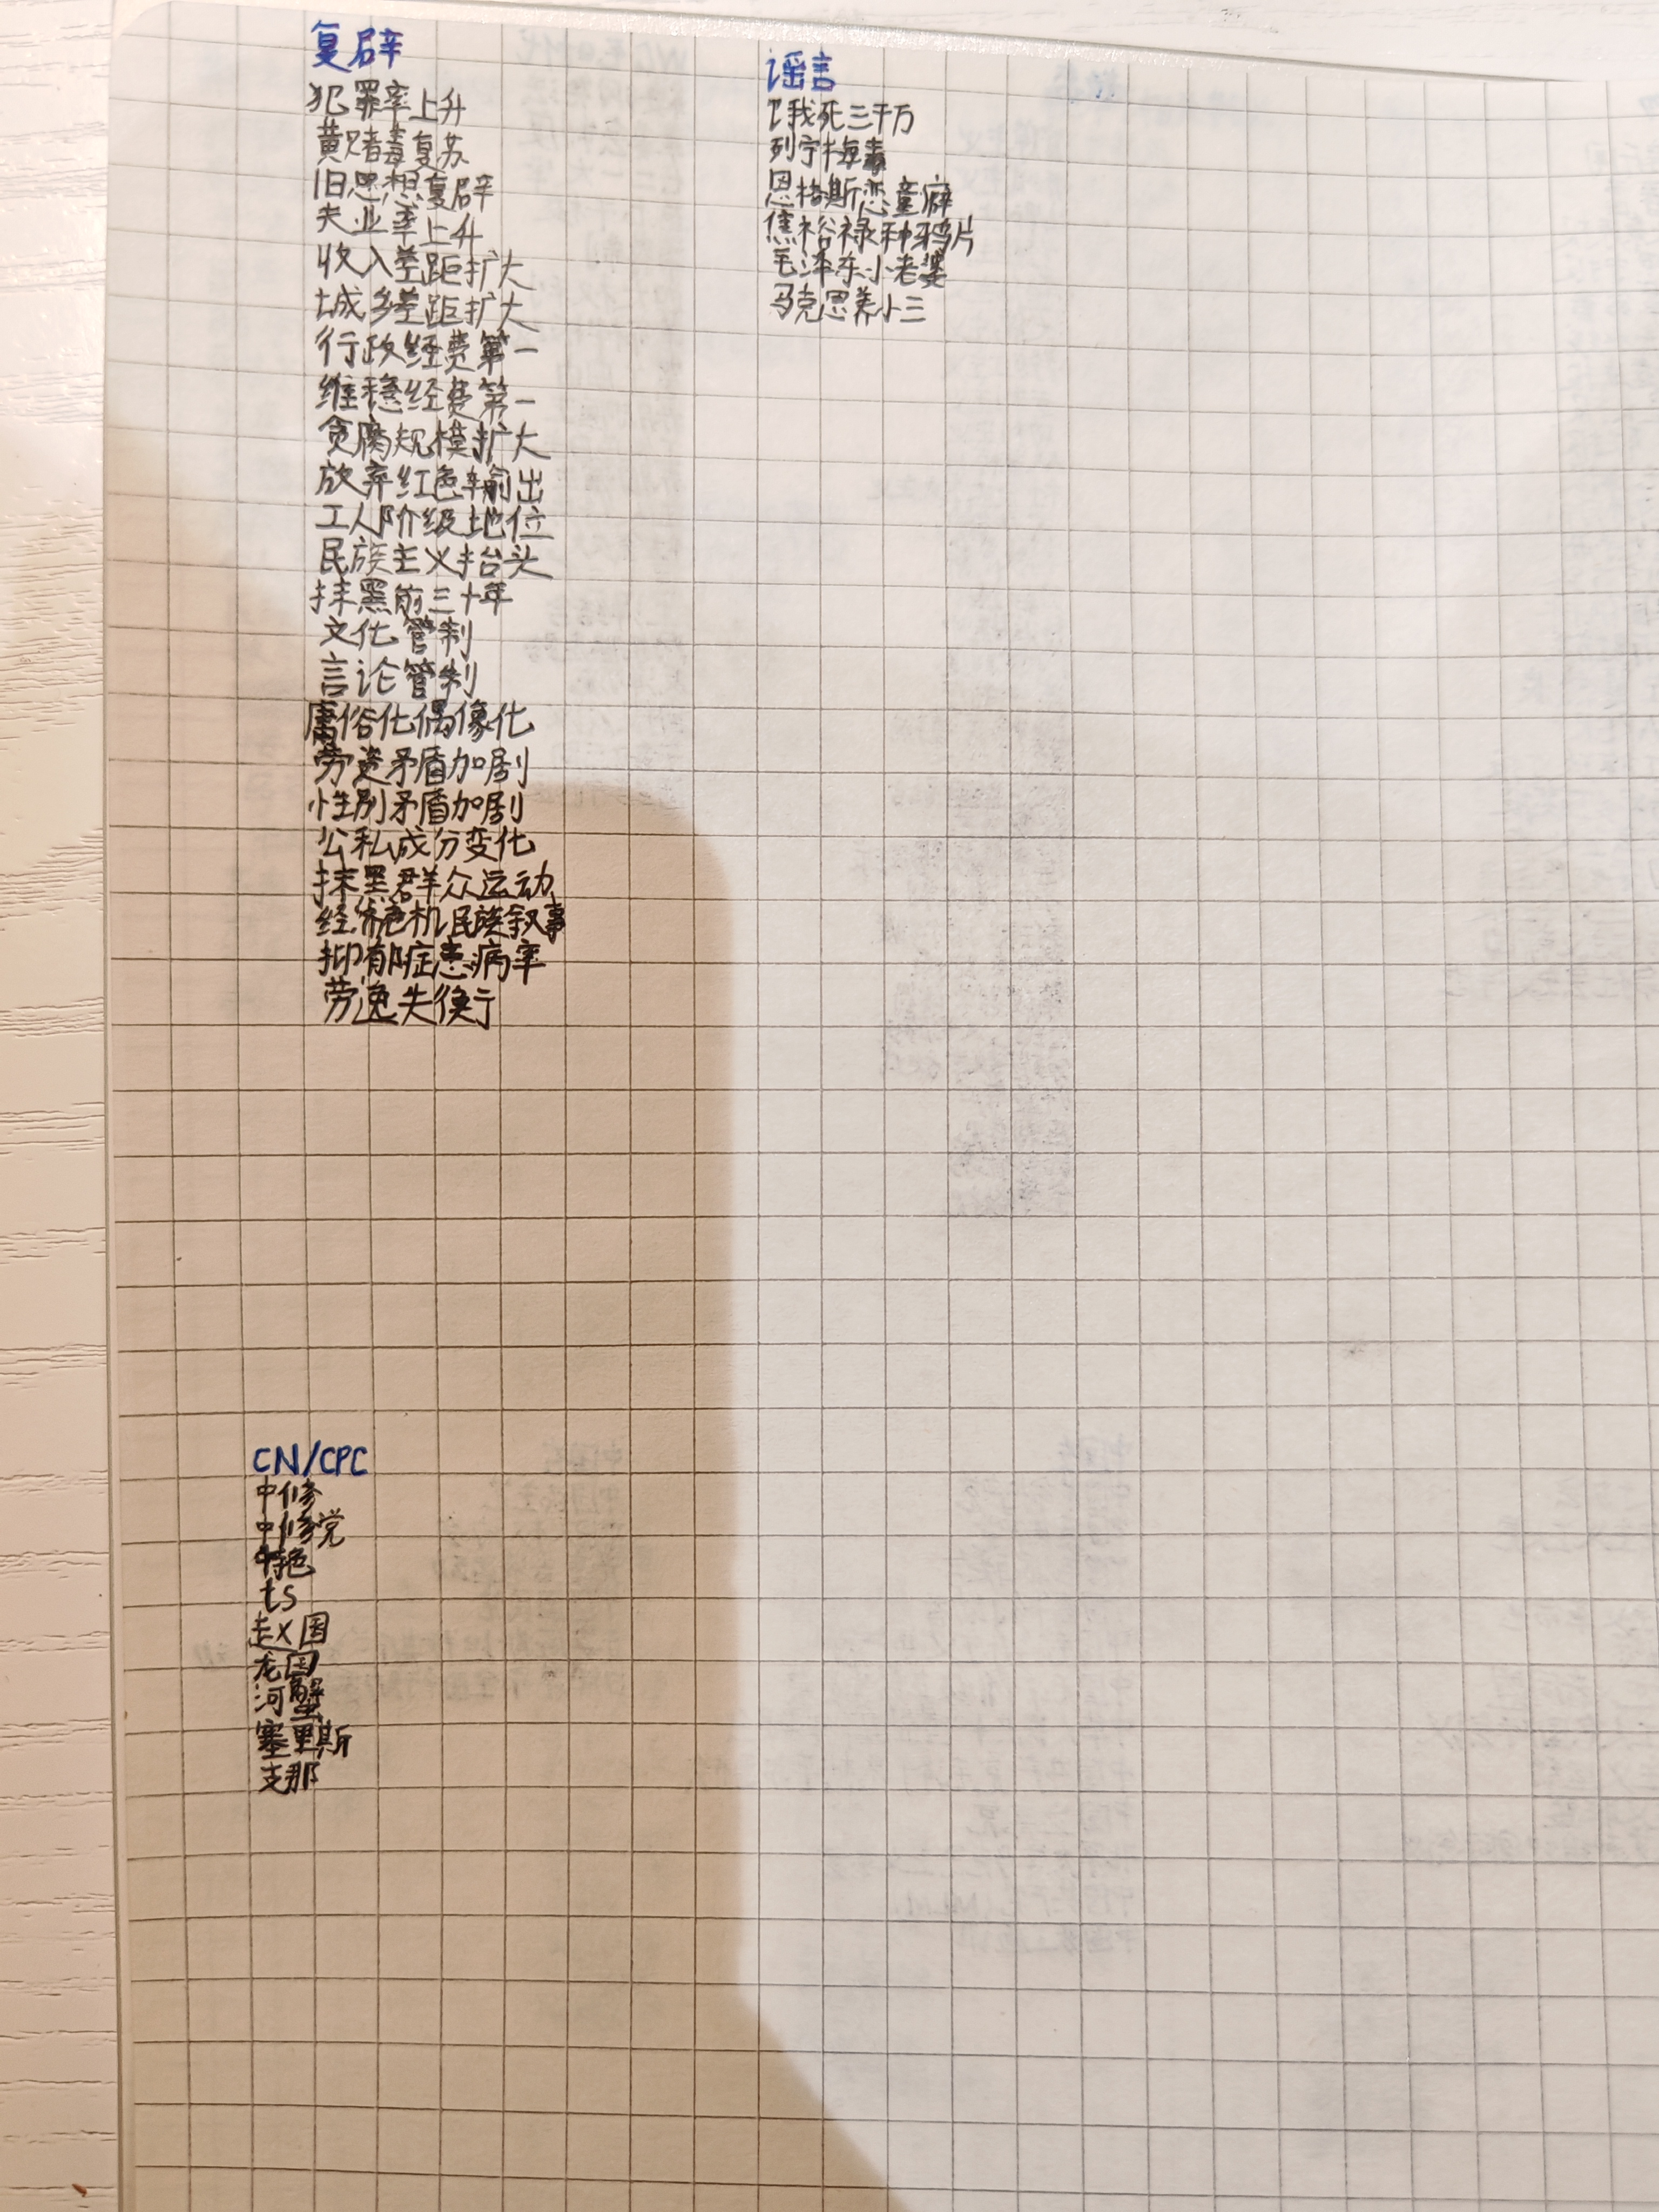 复辟
犯罪率上升
黄赌毒复苏
旧思想复辟
失业率上升
收入差距扩大
城乡差距扩大
行政经费第一
维稳经费第一
贪腐规模扩大
放弃红色输出
工人阶级地位
民族主义抬头
抹黑前三十年
文化管制
言论管制
庸俗化偶像化
劳资矛盾加剧
性别矛盾加剧
公私成份变化
抹黑群众运动
经济危机民族叙事
抑郁症患病率
劳逸失衡
谣言
饿死三千万
列宁梅毒
恩格斯恋童癖
焦裕禄种鸦片
毛泽东小老婆
马克思养小三
CN/CPC
中修
中修党
特色
ts
赵国
龙国
河蟹
塞里斯
支那